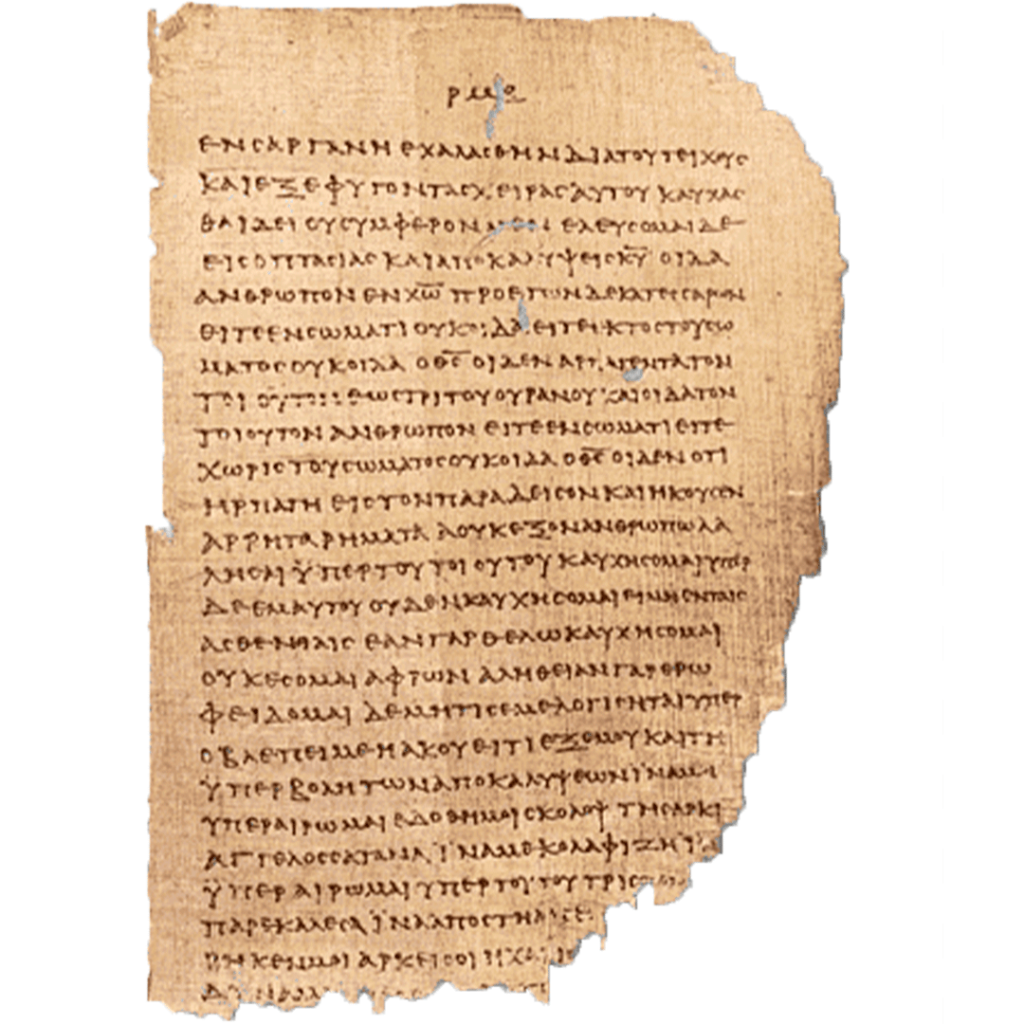 ΕΝ CΑΡΓΑΝΗ ΕΧΑΛΑCΘΗΝ ΔΙΑ ΤΟΥ ΤΕΙΧΟΥC
ΚΑΙ ΕΞΕΦΥΓΟΝ ΤΑC ΧΕΙΡΑC ΑΥΤΟΥ ΚΑΥΧΑC
ΘΑΙ ΔΕΙ ΟΥ CΥΜΦΕΡΟΝ ΜΕΝ ΕΛΕΥCΟΜΑΙ ΔΕ
ΕΙC ΟΠΤΑCΙΑC ΚΑΙ ΑΠΟΚΑΛΥΨΕΙC Κ̅Υ̅ ΟΙΔΑ
ΑΝΘΡΩΠΟΝ ΕΝ Χ̅Ω̅ ΠΡΟ ΕΤΩΝ ΔΕΚΑΤΕCCΑΡΩΝ
ΕΙΤΕ ΕΝ CΩΜΑΤΙ ΟΥΚ ΟΙΔΑ ΕΙΤΕ ΕΚΤΟC ΤΟΥ CΩ
ΜΑΤΟC ΟΥΚ ΟΙΔΑ Ο Θ̅C̅ ΟΙΔΕΝ ΑΡΠΑΓΕΝΤΑ ΤΟΝ
ΤΟΙΟΥΤΟΝ ΕΩC ΤΡΙΤΟΥ ΟΥΡΑΝΟΥ ΚΑΙ ΟΙΔΑ ΤΟΝ
ΤΟΙΟΥΤΟΝ ΑΝΘΡΩΠΟΝ ΕΙΤΕ ΕΝ CΩΜΑΤΙ ΕΙΤΕ
ΧΩΡΙC ΤΟΥ CΩΜΑΤΟC ΟΥΚ ΟΙΔΑ Ο Θ̅C̅ ΟΙΔΕΝ ΟΤΙ
ΗΡΠΑΓΗ ΕΙC ΤΟΝ ΠΑΡΑΔΕΙCΟΝ ΚΑΙ ΗΚΟΥCΕΝ
ΑΡΡΗΤΑ ΡΗΜΑΤΑ Α ΟΥΚ ΕΞΟΝ ΑΝΘΡΩΠΩ ΛΑ
ΛΗCΑΙ ΫΠΕΡ ΤΟΥ ΤΟΙΟΥΤΟΥ ΚΑΥΧΗCΟΜΑΙ ΥΠΕΡ
ΔΕ ΕΜΑΥΤΟΥ ΟΥΔΕΝ ΚΑΥΧΗCΟΜΑΙ ΕΙ ΜΗ ΕΝ ΤΑΙC
ΑCΘΕΝΕΙΑΙC ΕΑΝ ΓΑΡ ΘΕΛΩ ΚΑΥΧΗCΟΜΑΙ
ΟΥΚ ΕCΟΜΑΙ ΑΦΡΩΝ ΑΛΗΘΕΙΑΝ ΓΑΡ ΕΡΩ
ΦΕΙΔΟΜΑΙ ΔΕ ΜΗ ΤΙC ΕΜΕ ΛΟΓΙCΗΤΑΙ ΥΠΕΡ
Ο ΒΛΕΠΕΙ ΜΕ Η ΑΚΟΥΕΙ ΤΙ ΕΞ ΕΜΟΥ ΚΑΙ ΤΗ
ΫΠΕΡΒΟΛΗ ΤΩΝ ΑΠΟΚΑΛΥΨΕΩΝ ΪΝΑ ΜΗ
ΥΠΕΡΑΙΡΩΜΑΙ ΕΔΟΘΗ ΜΟΙ CΚΟΛΟΨ ΤΗ CΑΡΚΙ
ΑΓΓΕΛΟC CΑΤΑΝΑ ΪΝΑ ΜΕ ΚΟΛΑΦΙΖΗ ΪΝΑ
ΫΠΕΡΑΙΡΩΜΑΙ ΥΠΕΡ ΤΟΥΤΟΥ ΤΡΙC
ΠΑΡΕΚΑΛΕCΑ ΪΝΑ ΑΠΟCΤΗ ΑΠ Ε
ΡΗΚΕΝ ΜΟΙ ΑΡΚΕΙ CΟΙ Η ΧΑΡΙ